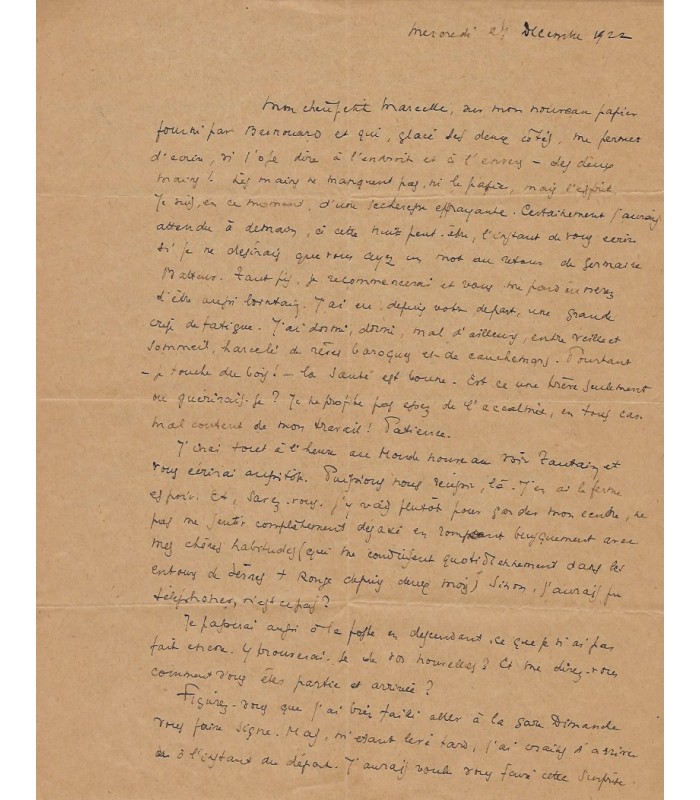 Mercredi 27 Décembre 1922
Mon cher petit Marcelle, sur mon nouveau papier
fourni par Bernouard et qui, glacé des deux côtés, me permet
d'écrire, si l'ose dire à l'endroit et à l'envers – des deux
mains! Les mains ne manquent pas, ni le papier, mais l'esprit.
Je suis, en ce moment, d'une sécheresse effrayante. Certainement j'aurais
attendu à demain, à cette nuit peut-être, l'instant de vous écrire
si je ne désirais que vous ayez un mot au retour de Germaine
Tant pis, je recommencerai et vous me pardonnerez
d'être aussi lointain. J'ai eu, depuis votre départ, une grande
crise de fatigue. J'ai dormi, dormi, mal d'ailleurs, entre veille et
sommeil, harcelé de rêves baroques et de cauchemars. Pourtant
– je touche du bois! – la santé est bonne. Est ce une trêve seulement
ou guérirais-je? Je ne profite pas assez de l'accalmie, en tous cas
mal content de mon travail! Patience.
J'irai tout à l'heure au Monde nouveau voir et
vous écrirai aussitôt. Puissions nous réussir, là. J'en ai le ferme
espoir. Et, savez-vous, j'y vais plutôt pour garder mon centre, ne
pas me sentir complètement désaxé en rompant brusquement avec
mes chères habitudes (qui me conduisent quotidiennement dans les
entours de + Rouge depuis deux mois) Sinon, j'aurais pu
téléphoner, n'est ce pas?
Je passerai aussi à la poste en descendant, ce que je n'ai pas
fait encore. Y trouverai-je de vos nouvelles? Et me direz-vous
comment vous êtes partie et arrivée?
Figurez-vous que j'ai bien failli aller à la gare Dimanche
vous faire signe. Mais, m'étant levé tard, j'ai craint d'arriver
à l'instant du départ. J'aurais voulu vous faire cette surprise.